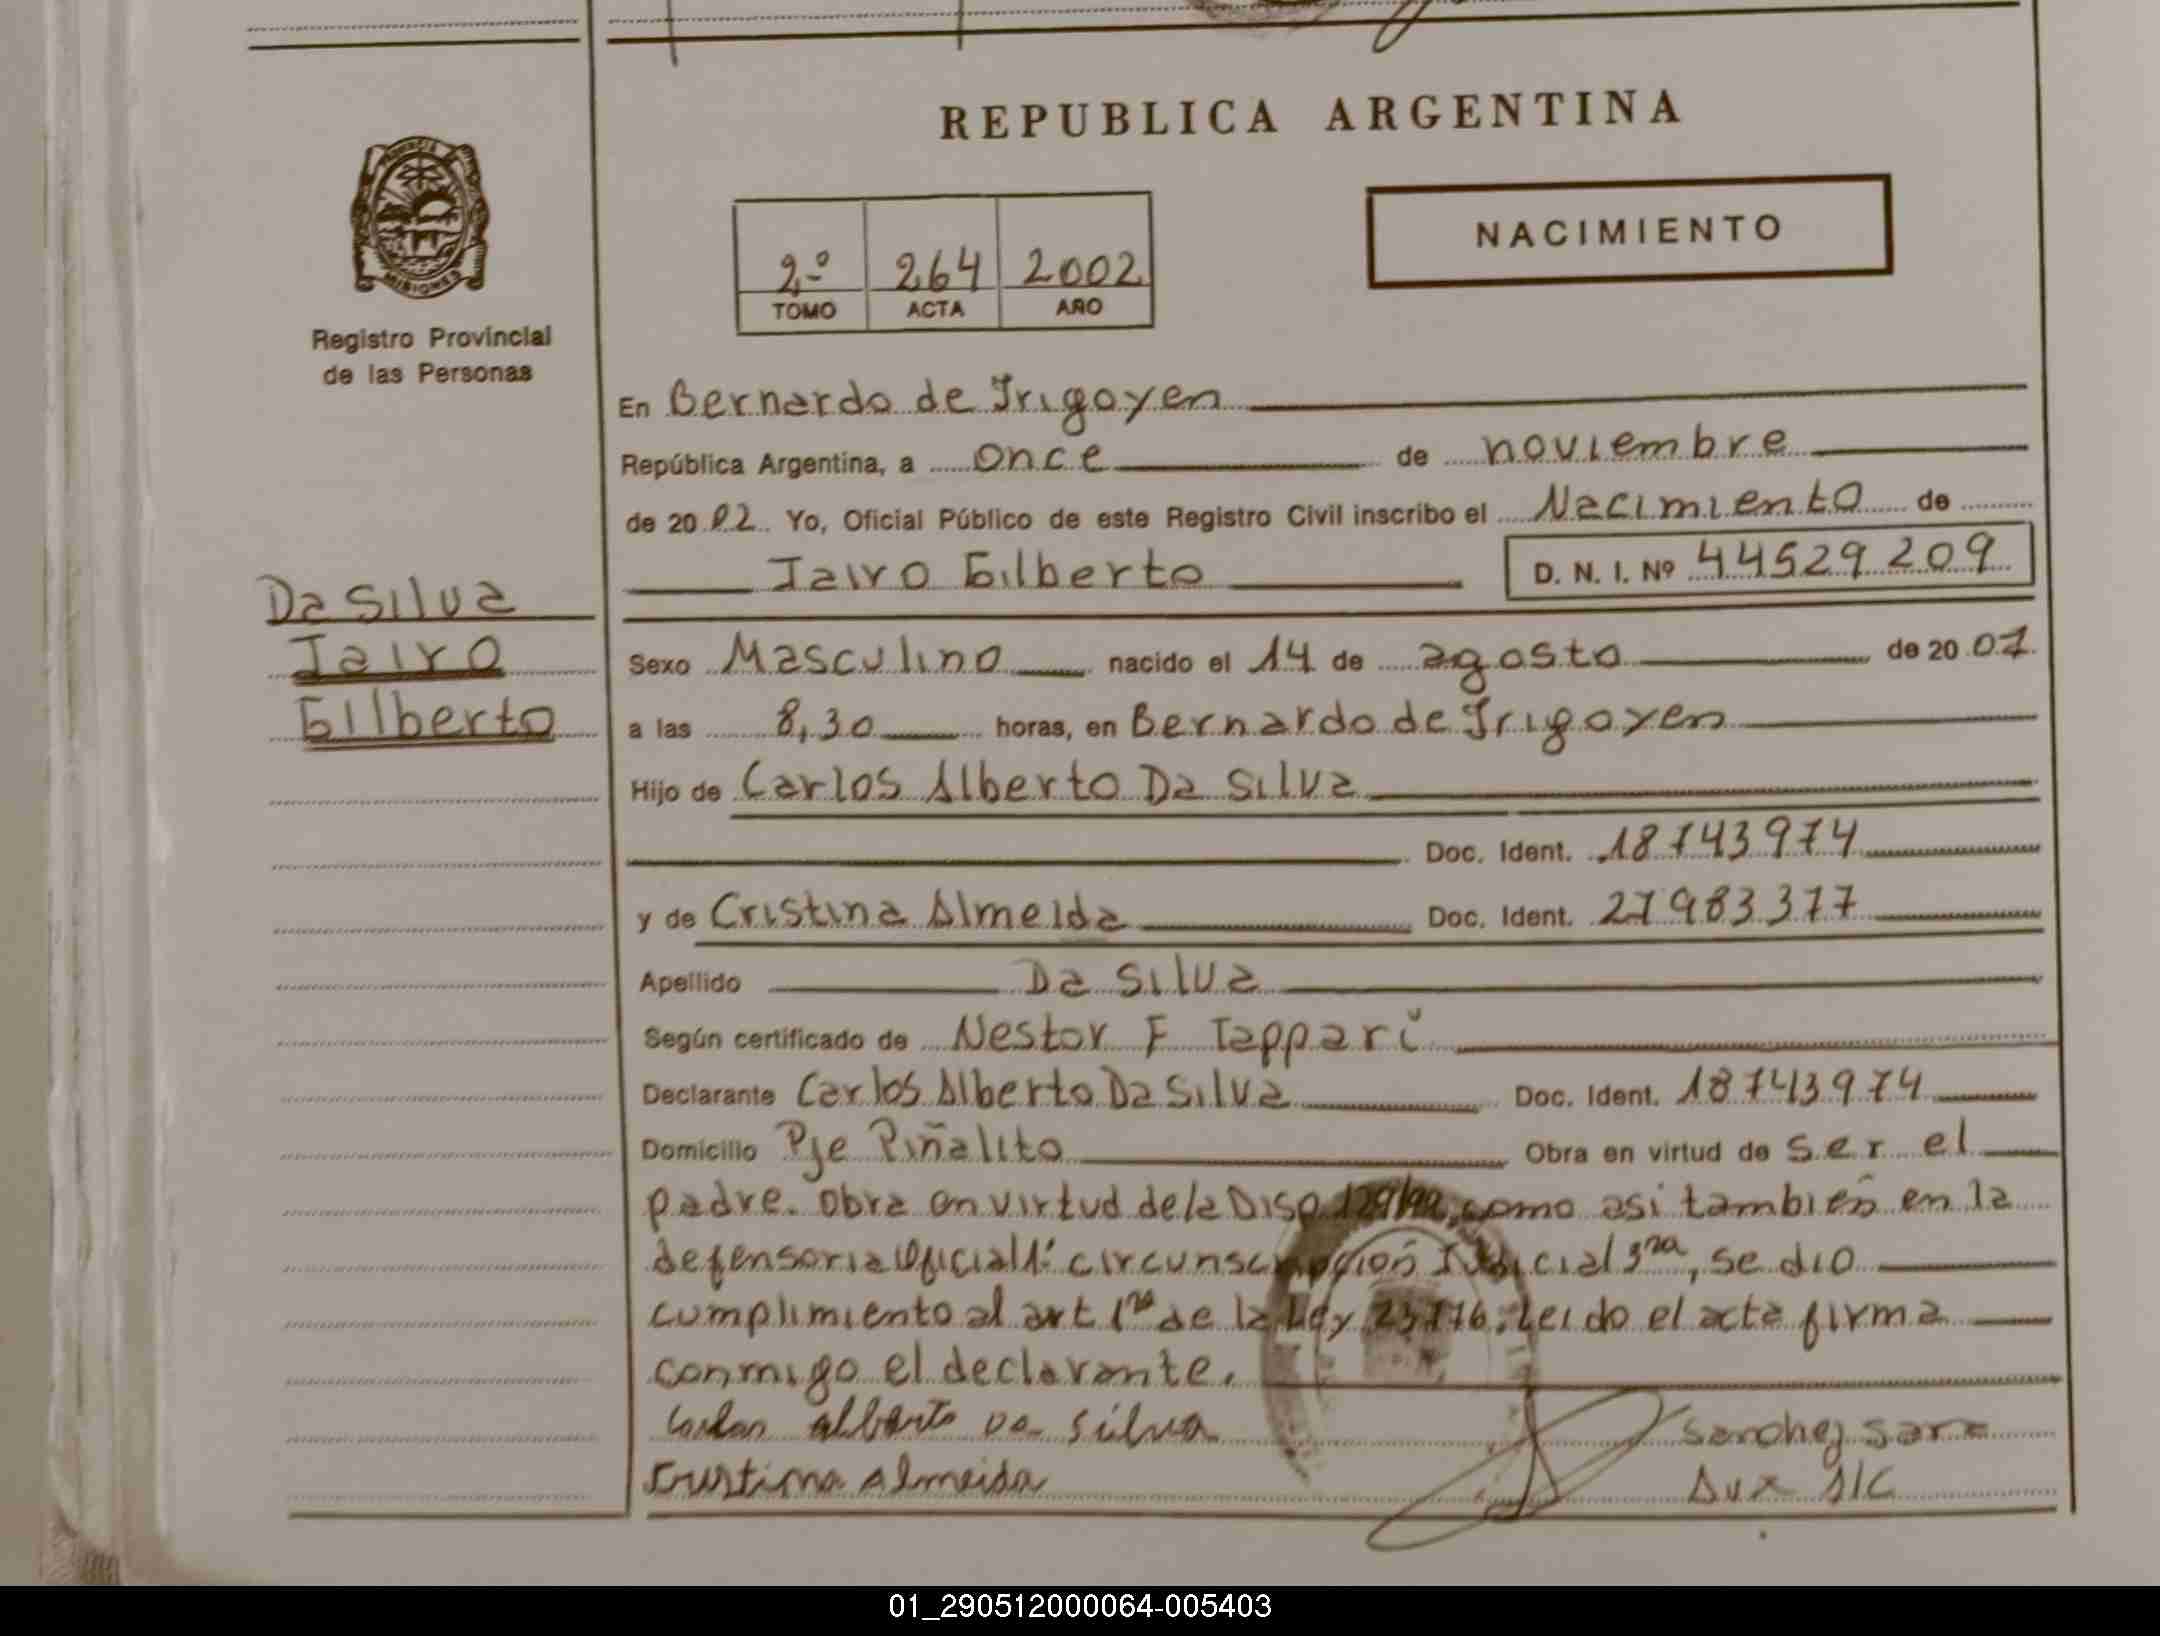 REPUBLICA ARGENTINA
PROVINCIA DE
MISIONES
Registro Provincial
de las Personas
NACIMIENTO
2º 264 2002
TOMO ACTA AÑO
En Bernardo de Irigoyen
República Argentina, a once de noviembre
de 2002. Yo, Oficial Público de este Registro Civil inscribo el Nacimiento de
Jairo Gilberto D. N. I. Nº 44529209
Da Silva
Jairo
Gilberto
Sexo Masculino nacido el 14 de agosto de 2001
a las 8,30 horas, en Bernardo de Irigoyen
Hijo de Carlos Alberto Da Silva
Doc. Ident. 18743974
y de Cristina Almeida Doc. Ident. 27983377
Apellido Da Silva
Según certificado de Nestor F Tappari
Declarante Carlos Alberto Da Silva Doc. Ident. 18743974
Domicilio Pje Piñalito Obra en virtud de ser el
padre. Obra en virtud de la Disp como asi también en la
defensoria Oficial circunscripción Judicial 3ra, se dio
cumplimiento al art 1ro de la Ley Leido el acta firma
conmigo el declarante.
Carlos alberto Da Silva
Cristina Almeida
Sanchez Sara
Aux A/C
01_290512000064-005403